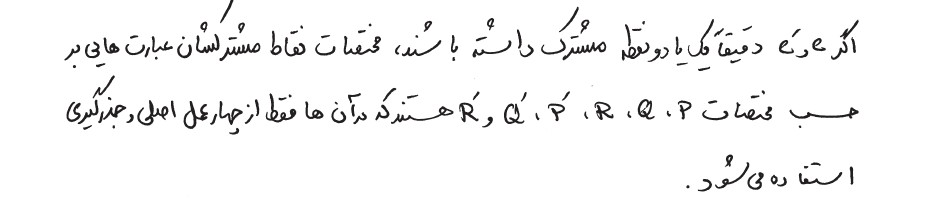 اگر e و e′ دقیقاً یک یا دو نقطه مشترک داشته باشند، مختصات نقاط مشترکشان عبارت هایی بر
حسب مختصات P، Q، R، P′، Q′ و R′ هستند که در آن ها فقط از چهار عمل اصلی و جذرگیری
استفاده می شود.